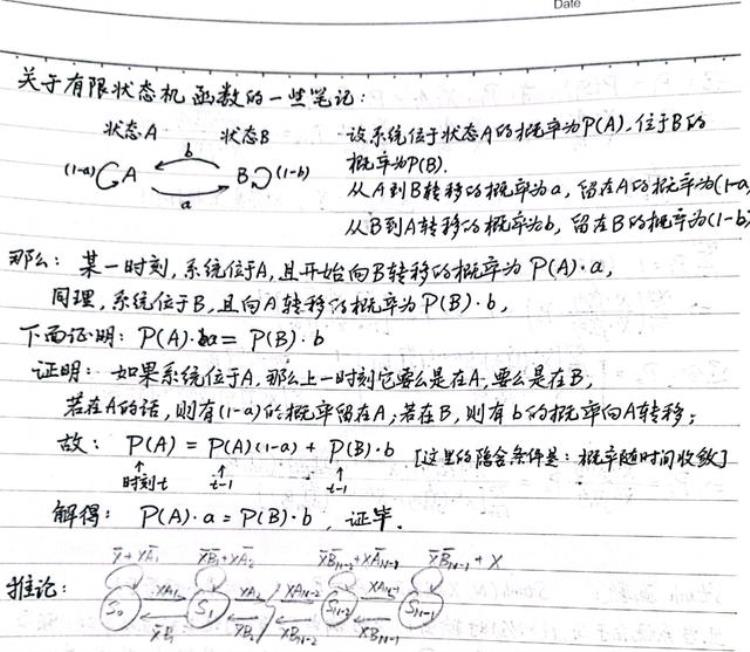 Date
关于有限状态机函数的一些笔记:
状态A 状态B
设系统位于状态A的概率为P(A), 位于B的
概率为P(B).
(1-a) A b a B (1-b)
从A到B转移的概率为a, 留在A的概率为(1-a
从B到A转移的概率为b, 留在B的概率为(1-b)
那么: 某一时刻, 系统位于A, 且开始向B转移的概率为 P(A)·a,
同理, 系统位于B, 且向A转移的概率为P(B)·b,
下面证明: P(A)·a = P(B)·b
证明: 如果系统位于A, 那么上一时刻它要么是在A, 要么是在B,
若在A的话, 则有(1-a)的概率留在A; 若在B, 则有b的概率向A转移;
故: P(A) = P(A)(1-a) + P(B)·b [这里的隐含条件是: 概率随时间收敛]
↑ ↑ ↑
时刻t t-1 t-1
解得: P(A)·a = P(B)·b, 证毕.
X̅+XA̅₁ X̅B̅₁+XA̅₂ X̅B̅N-2+XA̅N-1 X̅B̅N-1+X
推论: S₀ XA₁ S₁ XA₂ XAN-2 SN-2 XAN-1 SN-1
X̅B₁ X̅B₂ X̅BN-2 X̅BN-1